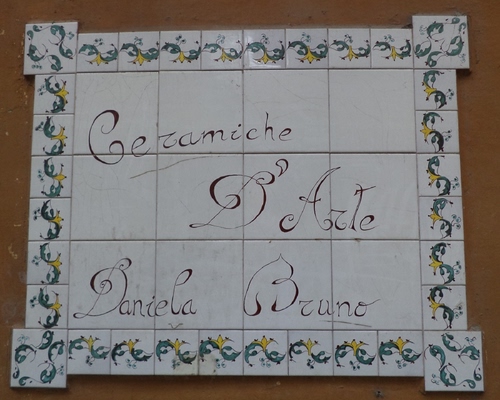 Ceramiche
D'Arte
Daniela Bruno